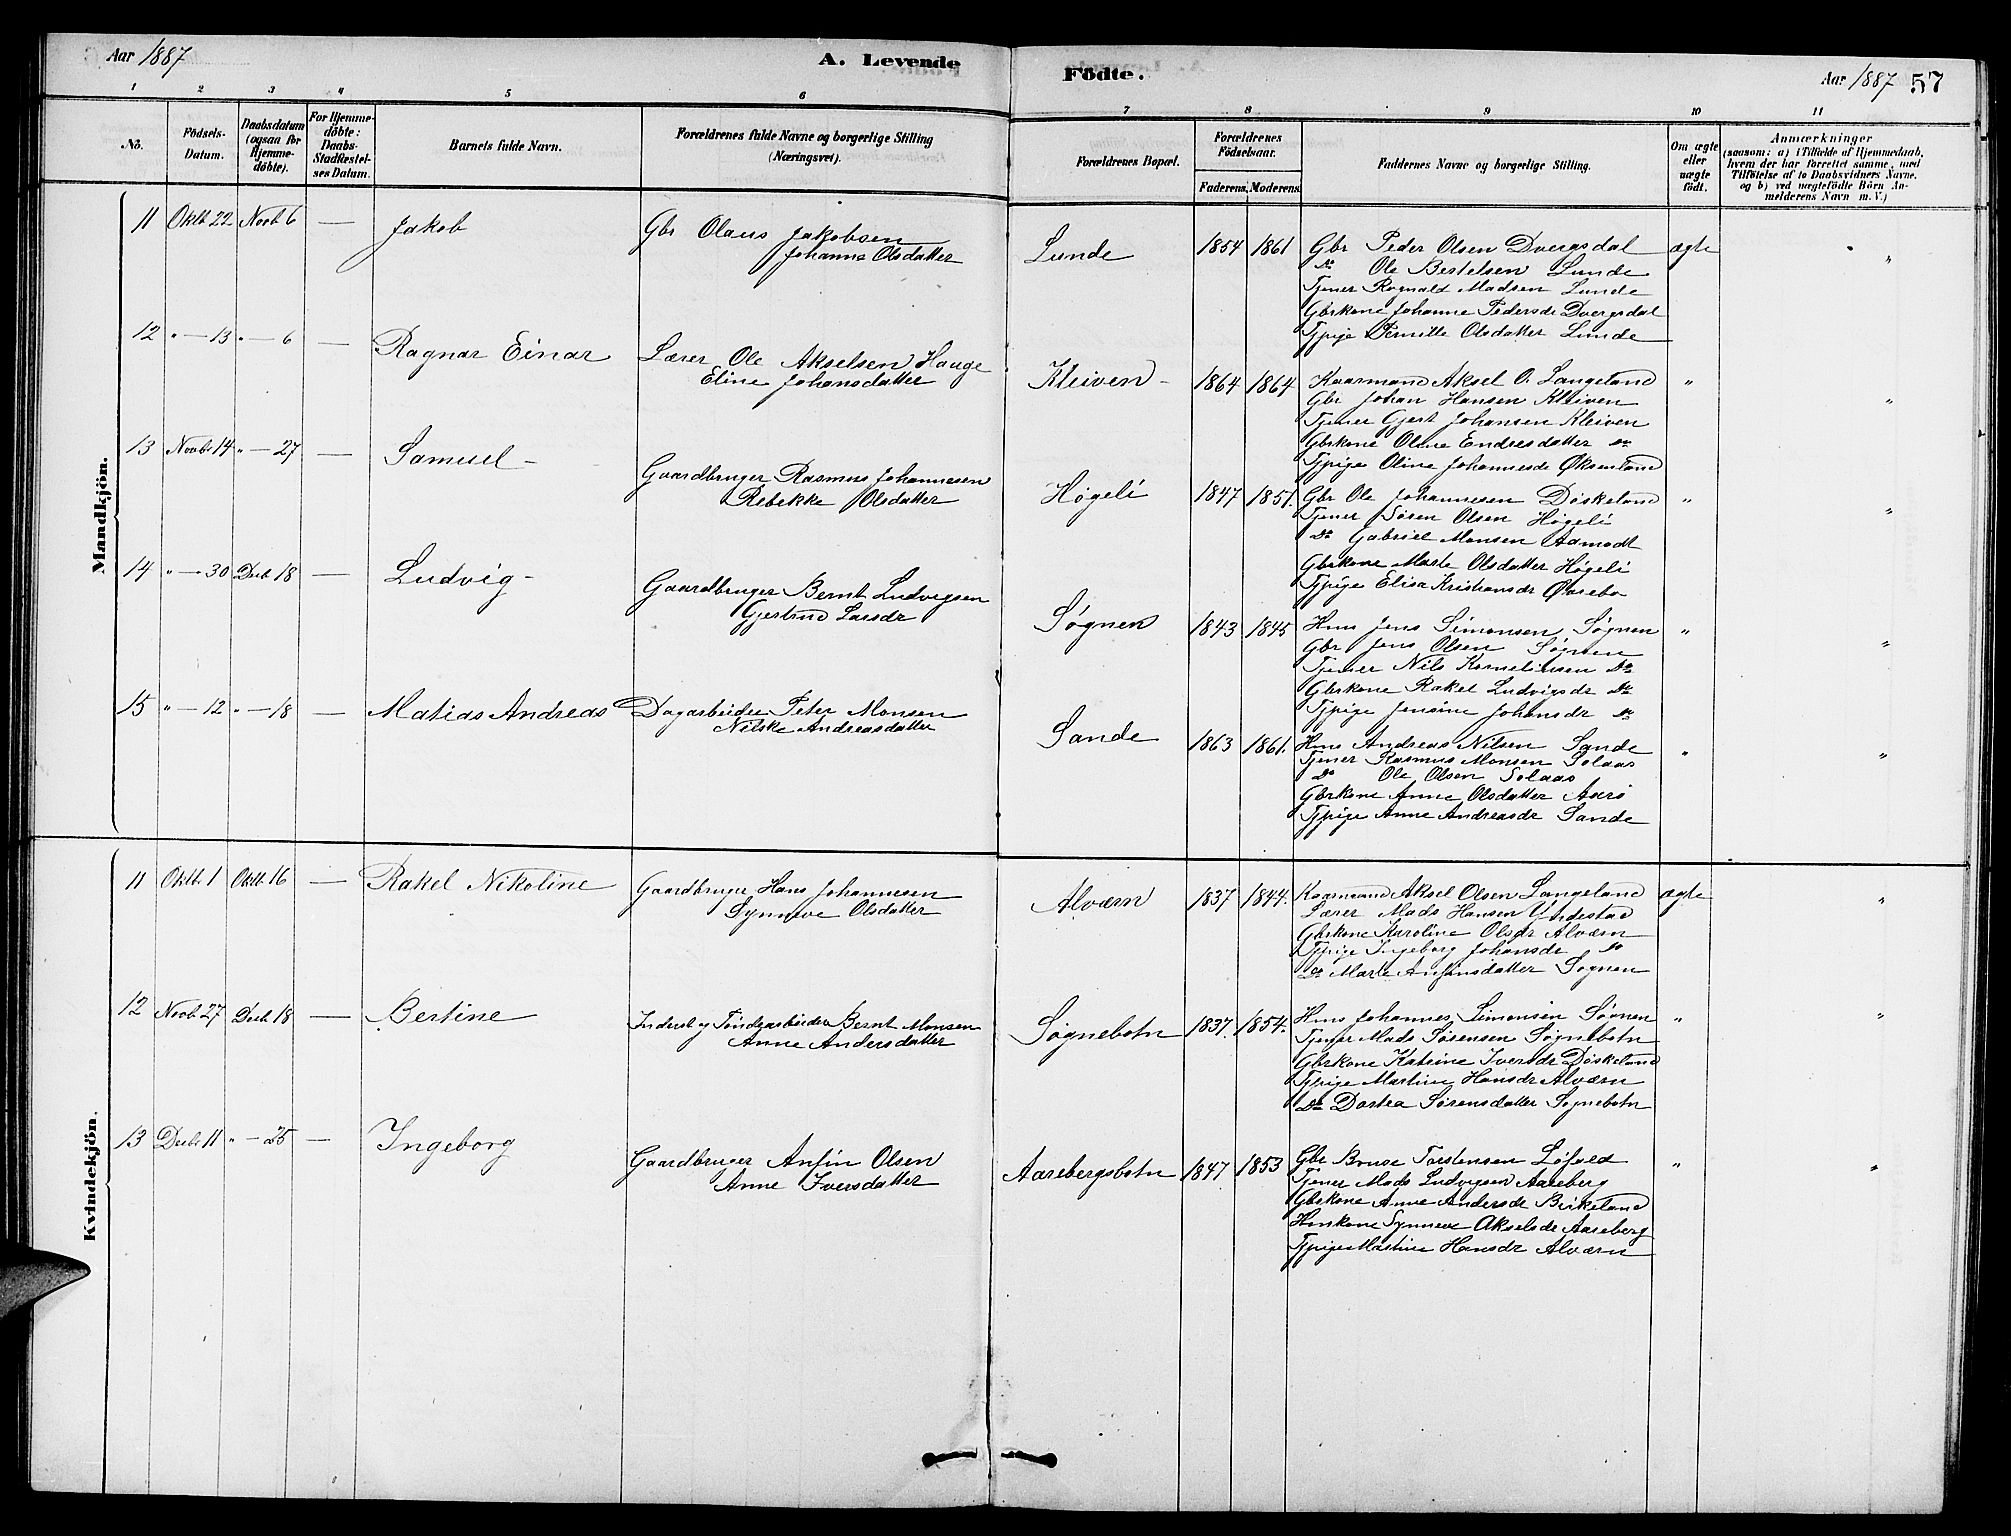 Aar 1887
A. Levende
Födte.
Aar 1887
57
1 2 3 4 5 6 7 8 9 10 11
No.
Födsels-
Datum.
Daabsdatum
(ogsaa for
Hjemme-
döbte).
For Hjemme-
döbte:
Daabs-
Stadfæstel-
ses Datum.
Barnets fulde Navn.
Forældrenes fulde Navne og borgerlige Stilling
(Næringsvei).
Forældrenes Bopæl.
Forældrenes
Födselsaar.
Faderens. Moderens.
Faddernes Navne og borgerlige Stilling.
Om ægte
eller
uægte
født.
Anmærkninger
(saasom: a) i Tilfælde af Hjemmedaab,
hvem der har forrettet samme, med
Tilföielse af to Daabsvidners Navne,
og b) ved uægtefödte Börn An-
melderens Navn m. V.)
Mandkjön.
11 Oktb. 22 Novb 6 — Jakob
Gbr Olaus Jakobsen
Johanne Olsdatter
Lunde 1854 1861
Gbr Peder Olsen Dvergsdal ægte "
Do Ole Bertelsen Lunde
Tjener Ragnald Madsen Lunde
Gbrkone Johanne Pedersdr Dvergsdal
Tjpige Pernille Olsdatter Lunde
12 " — 13 " — 6 — Ragnar Einar
Lærer Ole Akselsen Hauge
Eline Johansdatter
Kleiven - 1864 1864
Kaarmand Aksel O. Langeland " "
Gbr Johan Hansen Kleiven
Tjener Gjert Johansen Kleiven
Gbrkone Oline Endresdatter Do
Tjpige Oline Johannesdr Øksenland
13 Novbr 14 " — 27 — Samuel -
Gaardbruger Rasmus Johannesen
Rebekke Olsdatter
Høgeli 1847 1851.
Gbr Ole Johannesen Døskeland " "
Tjener Søren Olsen Høgeli
Do Gabriel Monsen Aamodt
Gbrkone Marte Olsdatter Høgeli
Tjpige Elisa Kristiansdr
14 " — 30 Decb 18 — Ludvig -
Gaardbruger Bernt Ludvigsen
Gjertrud Larsdr
Søgnen 1843 1845
Hms Jens Simonsen Søgnen " "
Gbr Jens Olsen Søgnen
Tjener Nils Korneliusen Do
Gbrkone Rakel Ludvigsdr Do
Tjpige Jensine Johansdr Do
15 " — 12 " — 18 — Matias Andreas
Dagarbeider Peter Monsen
Nilske Andreasdatter
Sande 1863 1861.
Hms Andreas Nilsen Sande " "
Tjener Rasmus Monsen Solaas
Do Ole Olsen Solaas
Gbrkone Anne Olsdatter Aarø
Tjpige Anne Andreasdr Sande
Kvindekjön.
11 Oktb. 1 Oktb. 16 — Rakel Nikoline
Gaardbruger Hans Johannesen
Synneve Olsdatter
Alværn 1837 1844.
Kaarmand Aksel Olsen Langeland ægte "
Lærer Mads Hansen Undestad
Gbrkone Karoline Olsdr Alværn
Tjpige Ingeborg Johansdr Do
Do Marte Anfinsdatter Søgnen
12 Novb 27 Decb 18 — Bertine
Inderst og Bernt Monsen
Anne Andersdatter
Søgnebotn 1837. 1854.
Hms Johannes Simonsen Søgnen " "
Tjener Mads Sørensen Søgnebotn
Gbrkone Katrine Iversdr Døskeland
Tjpige Martine Hansdr Alværn
Do Dortea Sørensdatter Søgnebotn
13 Decbr 11 " — 25 — Ingeborg
Gaardbruger Anfin Olsen
Anne Iversdatter
Aarebergsbotn 1847 1853
Gbr Bruse Torstensen " "
Tjener Mads Ludvigsen Aareberg
Gbrkone Anne Andersdr Birkeland
Hmskone Synneve Akselsdr Aareberg
Tjpige Martine Hansdr Alværn